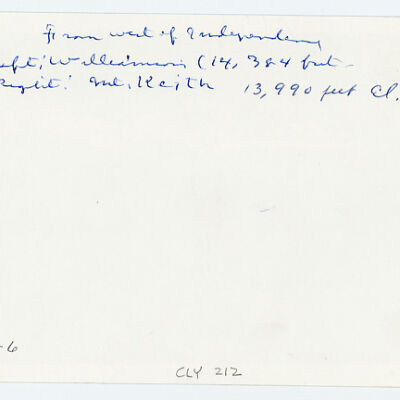 From west of Independency
eft: Williamson (14,384 feet-
Right: Mt. Keith 13,990 feet Cl.
-6
CLY 212